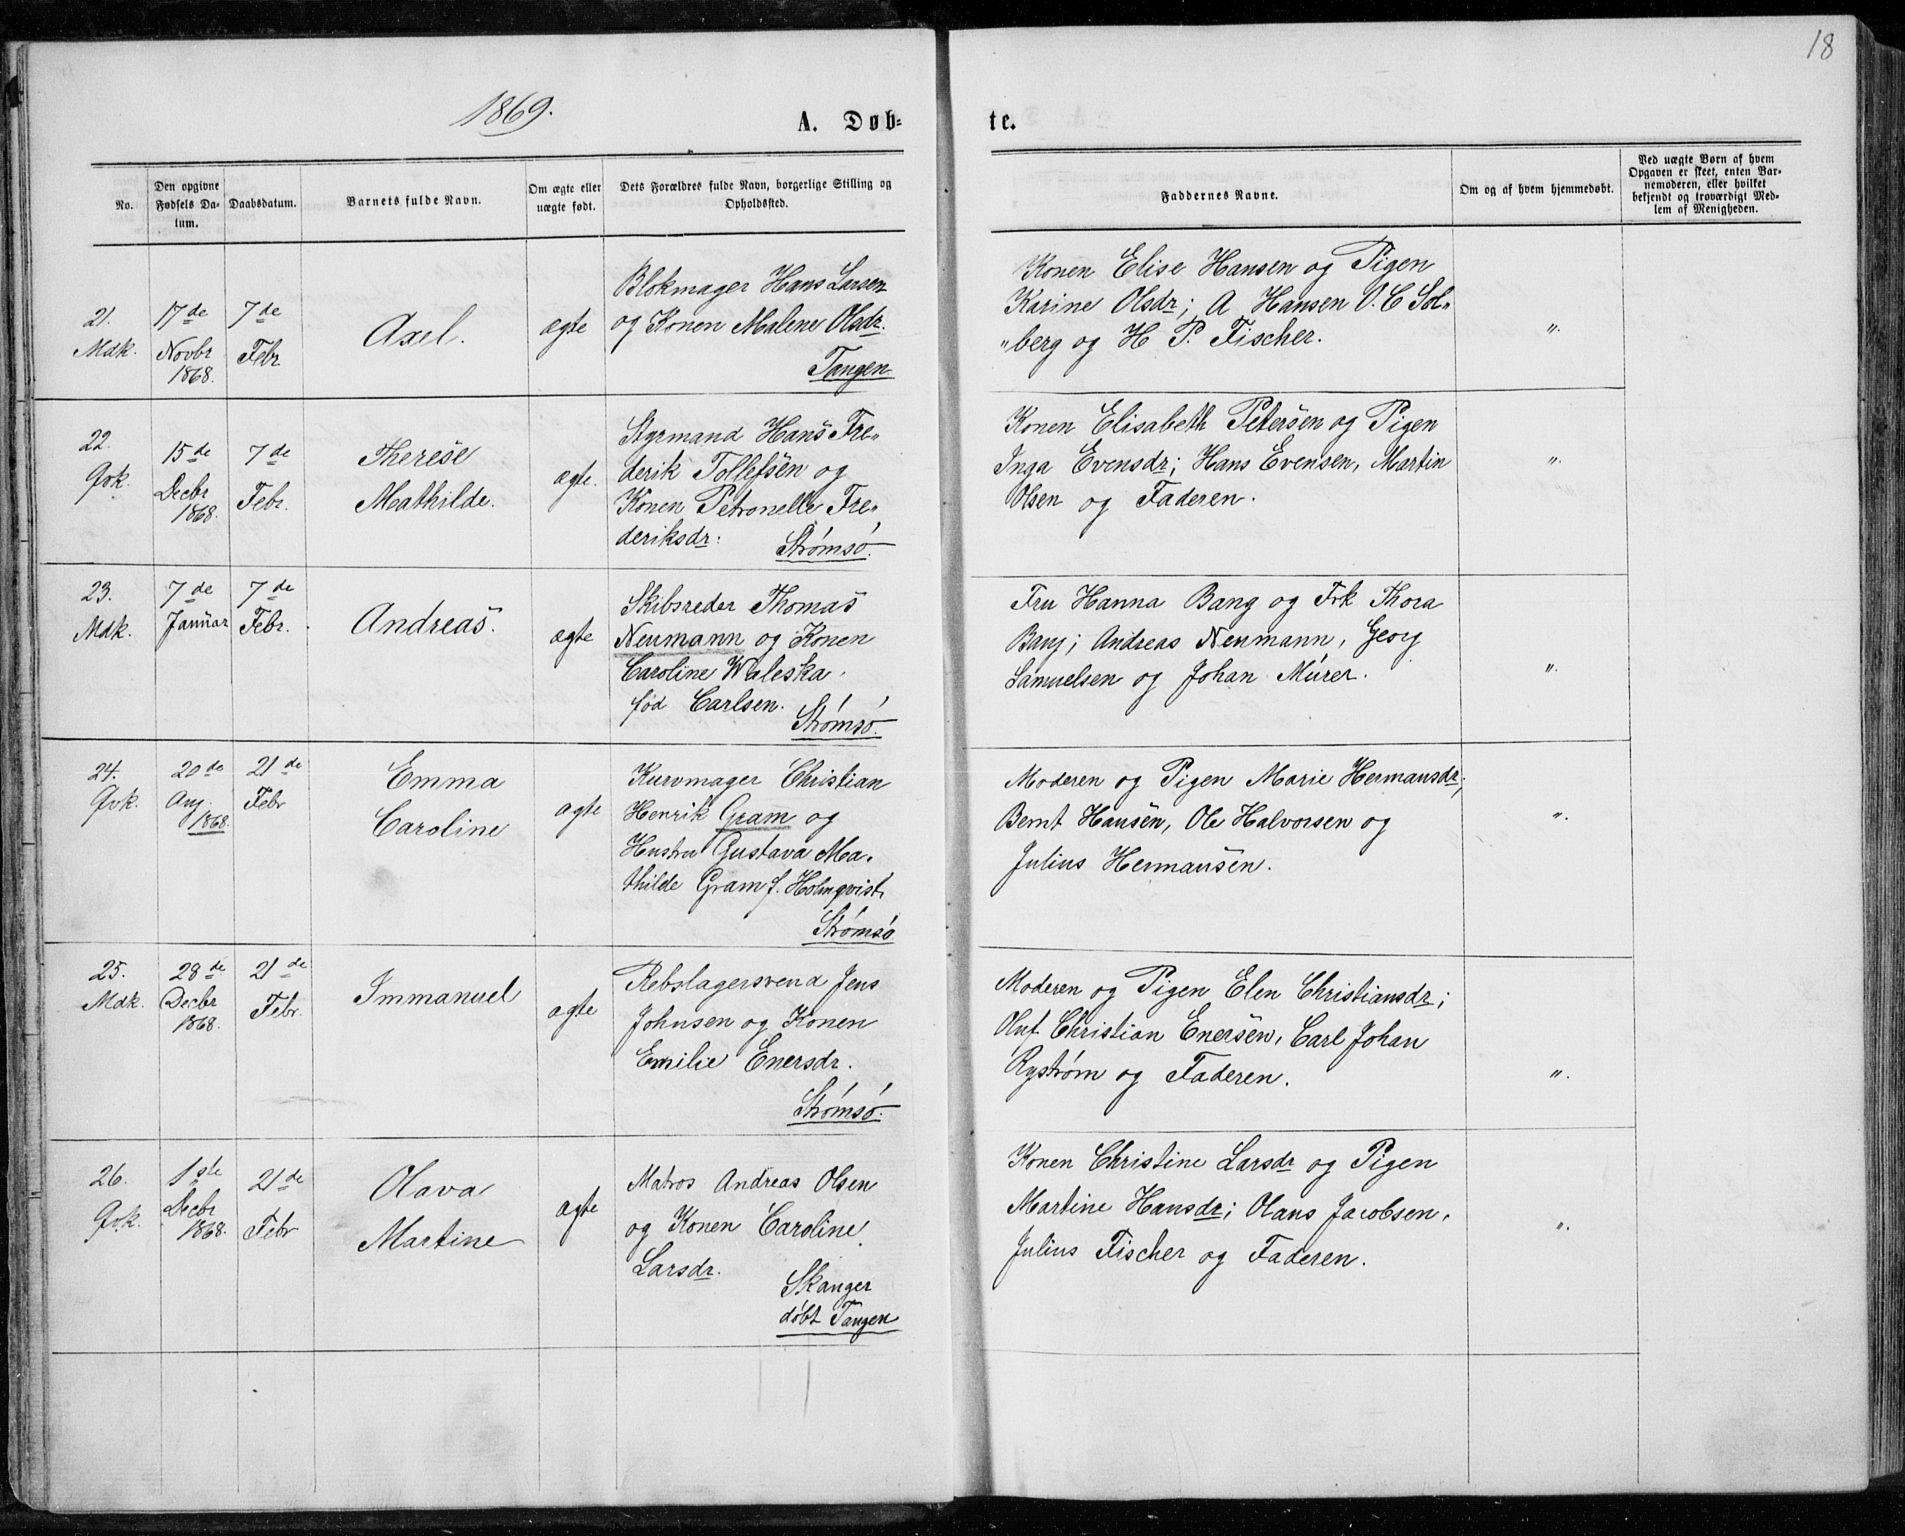 18
1869.
A. Døb-
te.
No.
Den opgivne Fødsels Da-
tum.
Daabsdatum.
Barnets fulde Navn.
Om ægte eller
uægte født.
Dets Forældres fulde Navn, borgerlige Stilling og
Opholdssted.
Faddernes Navne.
Om og af hvem hjemmedøbt.
Ved uægte Børn af hvem
Opgaven er skeet, enten Bar-
nemoderen, eller hvilket
bekjendt og troværdigt Med-
lem af Menigheden.
21.
Mdk.
17de
Novbr
1868.
7de
Febr
Axel.
ægte
Blokmager Hans Larsen
og Konen Malene Olsdr.
Tangen
Konen Elise Hansen og Pigen
Karine Olsdr; A Hansen O. C Sol„
„berg og H P. Fischer.
„.
22.
Qvk.
15de
Decbr
1868.
7de
Febr.
Therese
Mathilde.
ægte.
Styrmand Hans Fre„
derik Tollefsen og
Konen Petronelle Fre„
deriksdr.
Strømsø.
Konen Elisabeth Petersen og Pigen
Inga Evensdr; Hans Evensen, Martin
Olsen og Faderen.
„.
23.
Mdk.
7de
Januar
7de
Febr.
Andreas.
ægte
Skibsreder Thomas
Neumann og Konen
Caroline Waleska
fød Carlsen.
Strømsø.
Fru Hanna Bang og Frk Thora
Bang; Andreas Neumann, Georg
Samuelsen og Johan Mürer.
„.
24.
Qvk.
20de
Aug.
1868.
21de
Febr
Emma
Caroline
ægte
Kurvmager Christian
Henrik Gram og
Hustru Gustava Ma.
thilde Gram f. Holmqvist.
Strømsø
Moderen og Pigen Marie Hermansdr;
Bernt Hansen, Ole Halvorsen og
Julius Hermansen.
„.
25.
Mdk.
28de
Decbr
1868.
21de
Febr.
Immanuel
ægte
Rebslagersvend Jens
Johnsen og Konen
Emilie Enersdr.
Strømsø.
Moderen og Pigen Elen Christiansdr;
Oluf Christian Enersen, Carl Johan
Rystrøm og Faderen.
„.
26.
Qvk.
1ste
Decbr
1868.
21de
Febr
Olava
Martine
ægte
Matros Andreas Olsen
og Konen Caroline
Larsdr.
Skanger
døbt Tangen
Konen Christine Larsdr og Pigen
Martine Hansdr; Olaus Jacobsen,
Julius Fischer og Faderen.
„.